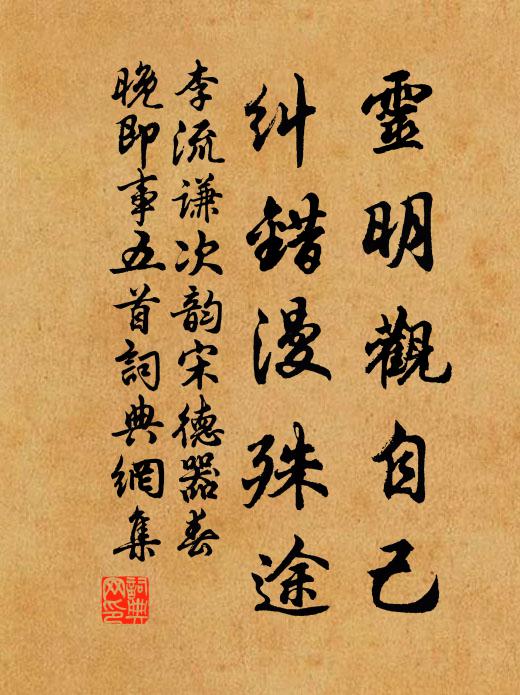 靈明觀自己
糾錯漫殊途
李流谦次韵宋德器春
晚即事五首詞典網集
詞典
网印